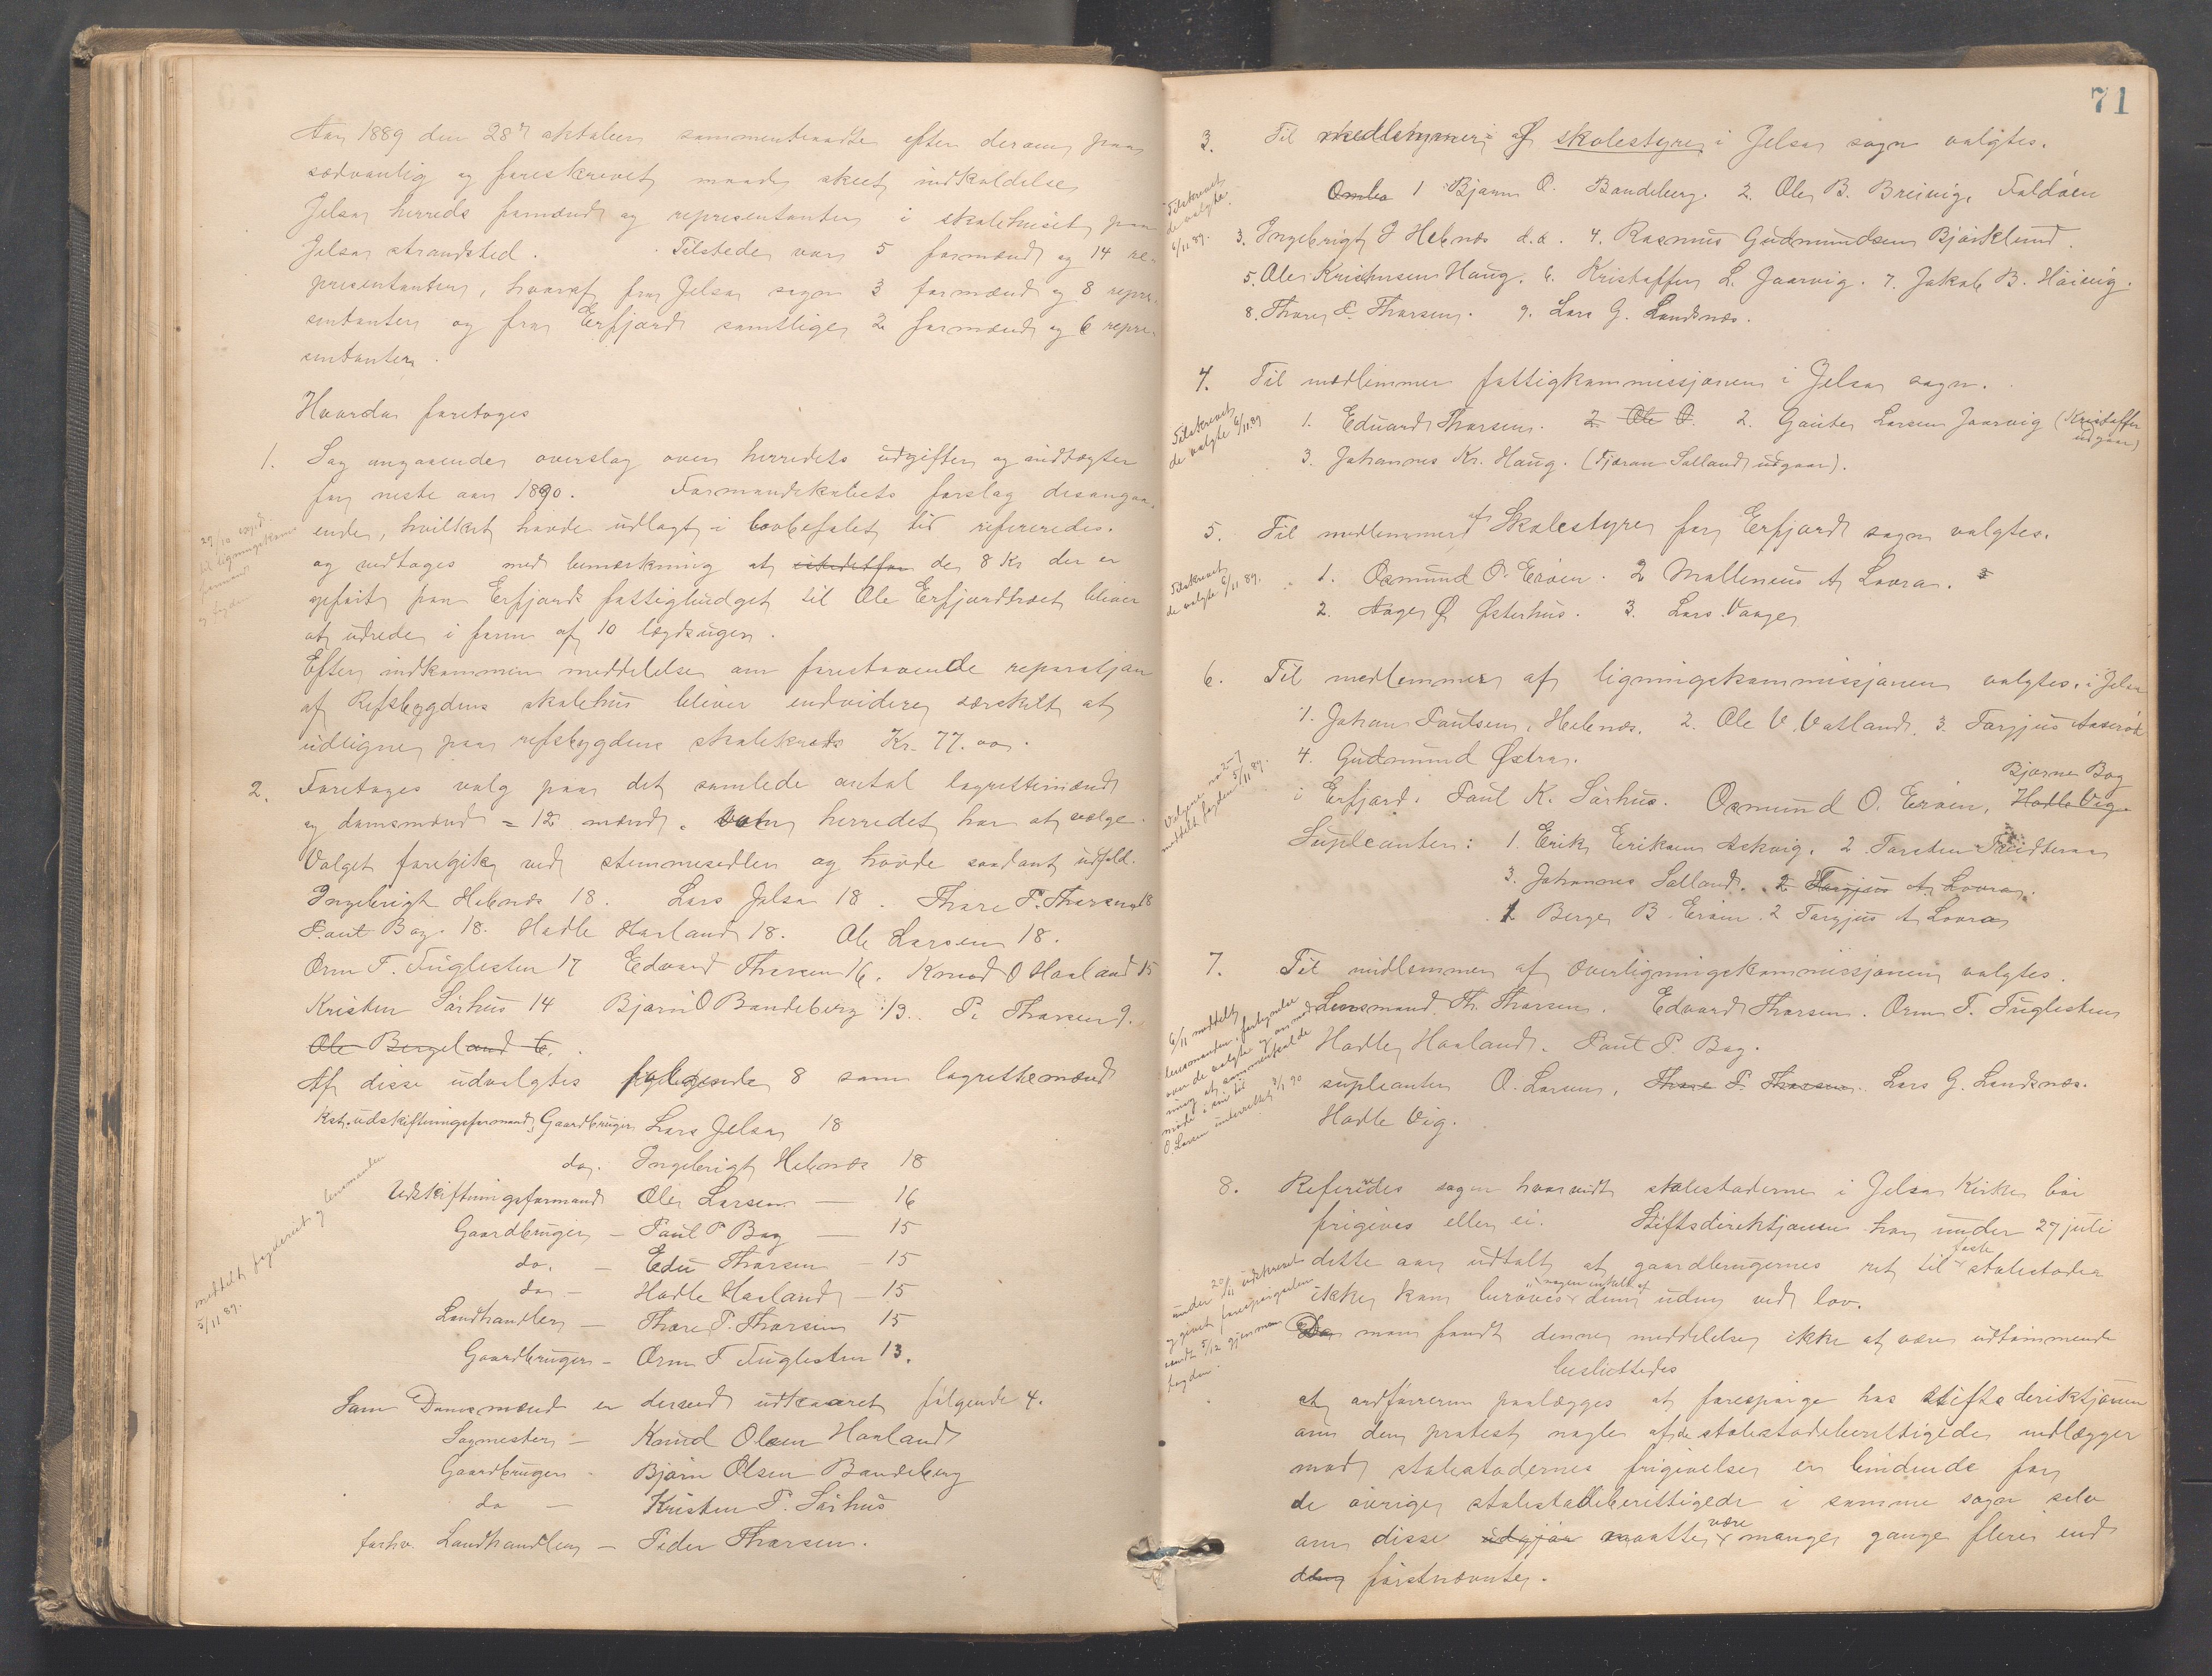 Aar 1889 den 28de oktober sammentraadte efter derom paa
sædvanlig og foreskrevet maade skeet indkaldelse
Jelsa herreds formænd og representanter i skolehuset paa
Jelsa strandsted. Tilstede var 5 formænd og 14 re-
presentanter, hvoraf fra Jelsa sogn 3 formænd og 8 repre-
sentanter og fra Erfjord samtlige 2 formænd og 6 repre-
sentanter.
Hvorda foretoges
1. Sag angaaende overslag over herredets udgifter og indtægter
for neste aar 1890. Formandskabets forslag desangaa-
ende, hvilket havde udlagt i lovbefalet tid refereredes.
og vedtoges med bemærkning at de 8 Kr der er
opført paa Erfjords fattigbudget til Ole Erfjordtræet bliver
at udrede i form af 10 lægdsuger.
Efter indkommen meddelelse om forestaaende reparasjon
af Refsbygdens skolehus bliver endvidere særskilt at
udligne paa refsbygdens skolekreds Kr. 77.00.
2. Foretoges valg paa det samlede antal lagrettemænd
og domsmænd = 12 mænd, herredet har at vælge.
Valget foregik ved stemmesedler og havde saadant udfald.
Ingebrigt Hebnes 18. Lars Jelsa 18. Thore P. Thorsen 18
Paul Bog 18. Hadle Haaland 18. Ole Larsen 18.
Orm T. Fuglesten 17 Edvard Thorsen 16. Knud O Haaland 15
Kristen Sørhus 14 Bjørn O Bandeberg 13. P. Thorsen 9.
Ole Bergeland 6.
Af disse udvalgtes følgende 8 som lagrettemænd
Kst. udskiftningsformand, Gaardbruger Lars Jelsa 18
do. Ingebrigt Hebnes 18
Udskiftningsformand Ole Larsen — 16
Gaardbruger — Paul P Bog — 15
do. — Edv Thorsen — 15
do — Hadle Haaland — 15
Landhandler — Thore P. Thorsen 15
Gaardbruger — Orm T Fuglesten 13.
Som Domsmænd er derved udkaaret følgende 4.
Sagmester — Knud Olsen Haaland
Gaardbruger - Bjørn Olsen Bandeberg
do — Kristen P. Sørhus
forhv. Landhandler — Peder Thorsen.
meddelt fogderiet og lensmanden
5/11 89.
71
3. Til medlemmer af skolestyre i Jelsa sogn valgtes.
1 Bjørn O. Bandeberg. 2. Ole B. Breivig, Foldøen
3. Ingebrigt J Hebnes d.æ. 4. Rasmus Gudmundsen Bjørklund.
5. Ole Kristensen Haug. 6. Kristoffer L. Jaarvig. 7. Jakob B. Høivig.
8. Thore P. Thorsen. 9. Lars G. Landsnes.
Tilskrevet
de valgte
6/11 89.
4. Til medlemmer fattigkommissjonen i Jelsa sogn.
1. Edvard Thorsen. 2 Ole O. 2. Gaute Larsen Jaarvig (Kristoffer
udgaar)
3. Johannes Kr. Haug. (Tjøran Salland udgaar).
Tilskrevet
de valgte 6/11 89
5. Til medlemmer af Skolestyre for Erfjord sogn valgtes.
1. Osmund O. Erøen. 2 Malleneus A Lovra. 3
2. Aage Ø Østerhus. 3. Lars Vaage
Tilskrevet
de valgte 6/11 89.
6. Til medlemmer af ligningskommissjonen valgtes. i Jelsa
1. Johan Paulsen, Hebnes. 2. Ole V. Vatland. 3. Torgjus Aaserød
4. Gudmund Østra.
Bjørne Bog
i Erfjord. Paul K. Sørhus. Osmund O. Erøen, Hadle Vig
Supleanter: 1. Erik Eriksen Askvig. 2 Torsten
3. Johannes Salland. 2 Torgjus A. Lovra.
1 Berge B. Erøen. 2 Torgjus A Lovra
7. Til midlemmer af Overligningskommissjonen valgtes.
Lensmand Th. Thorsen. Edvard Thorsen. Orm T. Fuglesten
Hadle Haaland. Paul P. Bog.
supleanter O. Larsen, Thore P. Thorsen. Lars G. Landsnes.
Hadle Vig.
6/11 meddelt
lensmanden fortegnelse
over de valgte og anmod
ning at sammenkalde
møde i sin tid
O. Larsen underrettet 2/1 90
8. Refereredes sagen hvorvidt stolestaderne i Jelsa Kirke bør
frigives eller ei. Stiftsdirektjonen har under 27 juli
dette aar udtalt at gaardbrugernes ret til faste stolestader
ikke kan berøves dem uden ved lov.
Da man fandt denne meddelelse ikke at være udtømmende
besluttedes
at ordføreren paalægges at forespørge hos stiftsdirektjonen
om den protest nogle af de stolestadeberettigede indlægger
mod stolestadernes frigivelse er bindende for
de øvrige stolestadeberettigede i samme sogn selv
om disse udgjør maatte være mange gange flere end
den førstnævnte.